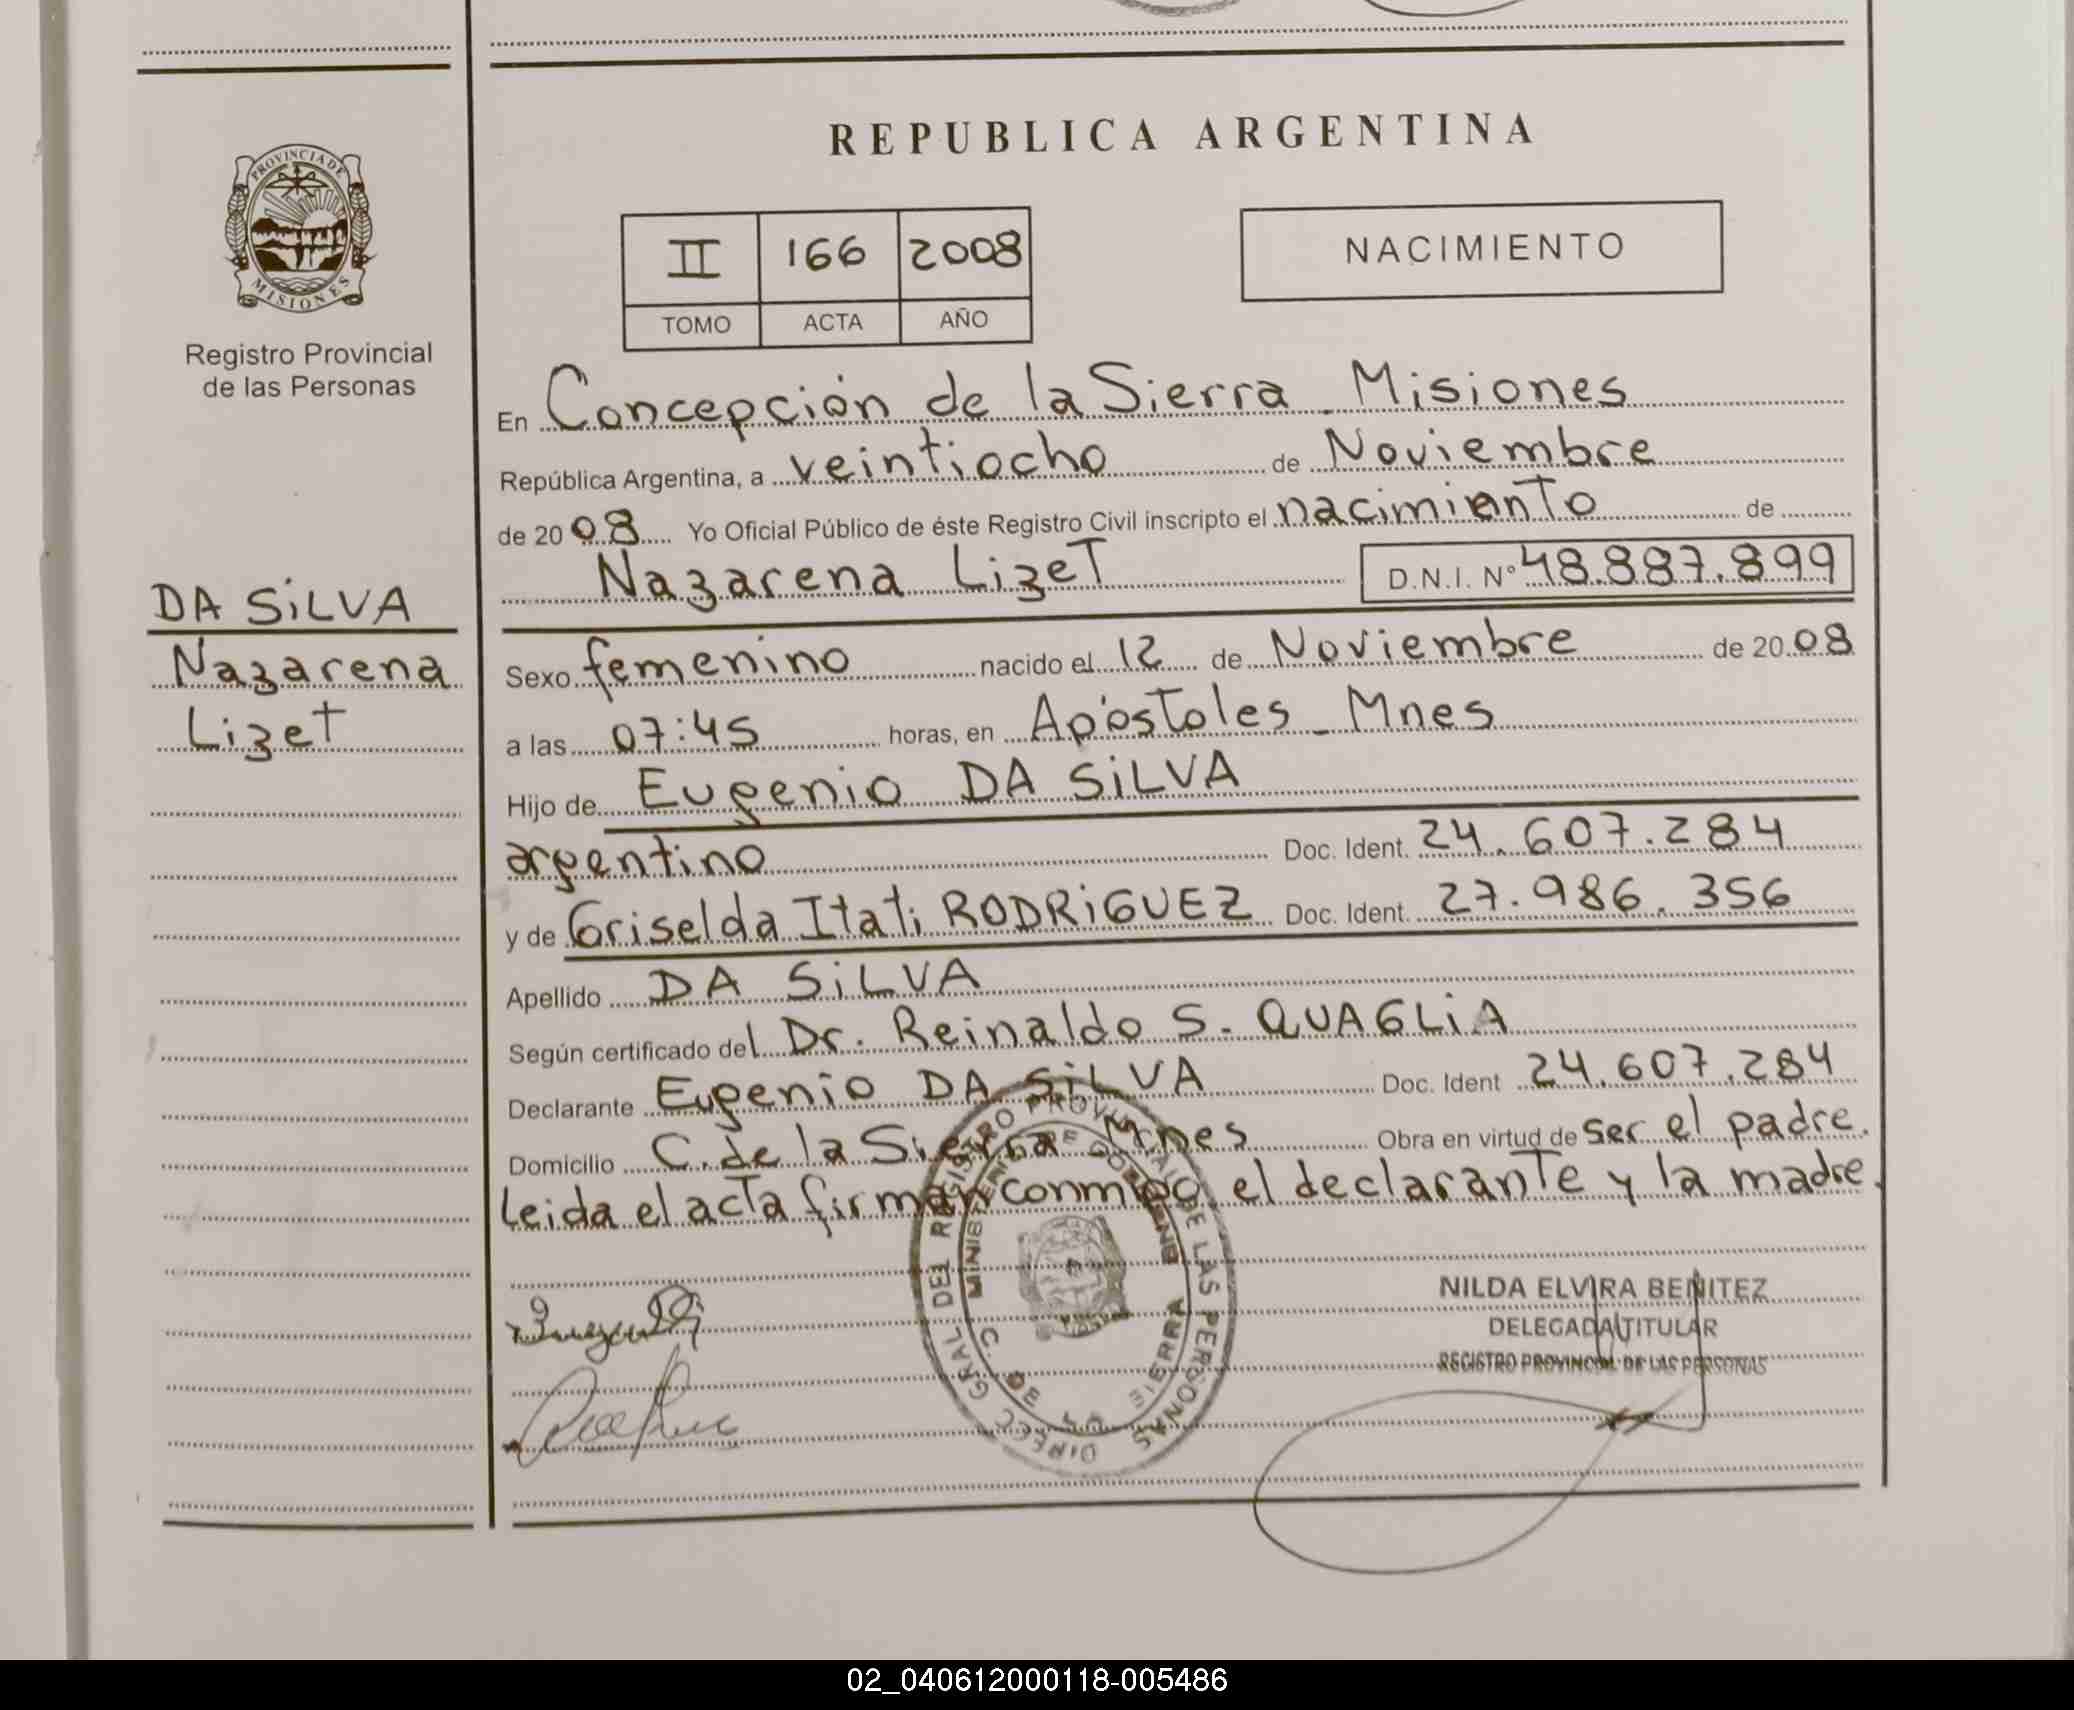 PROVINCIA DE
MISIONES
Registro Provincial
de las Personas
DA SiLVA
Nazarena
Lizet
REPUBLICA ARGENTINA
II 166 2008
TOMO ACTA AÑO
NACIMIENTO
En Concepción de la Sierra - Misiones
República Argentina, a veintiocho de Noviembre
de 2008 Yo Oficial Público de éste Registro Civil inscripto el nacimiento de
Nazarena Lizet D.N.I. Nº 48.887.899
Sexo femenino nacido el 12 de Noviembre de 2008
a las 07:45 horas, en Apóstoles - Mnes
Hijo de Eugenio DA SiLVA
argentino Doc. Ident. 24.607.284
y de Griselda Itati RODRiGUEZ Doc. Ident. 27.986.356
Apellido DA SiLVA
Según certificado del Dr. Reinaldo S. QUAGLiA
Declarante Eugenio DA SiLVA Doc. Ident 24.607.284
Domicilio C. de la Sierra Mnes Obra en virtud de ser el padre.
Leida el acta firman conmigo el declarante y la madre.
DIREC GRAL DEL REGISTRO PROVINCIAL DE LAS PERSONAS
C. DE LA SIERRA
NILDA ELVIRA BENITEZ
DELEGADA TITULAR
REGISTRO PROVINCIAL DE LAS PERSONAS
02_040612000118-005486